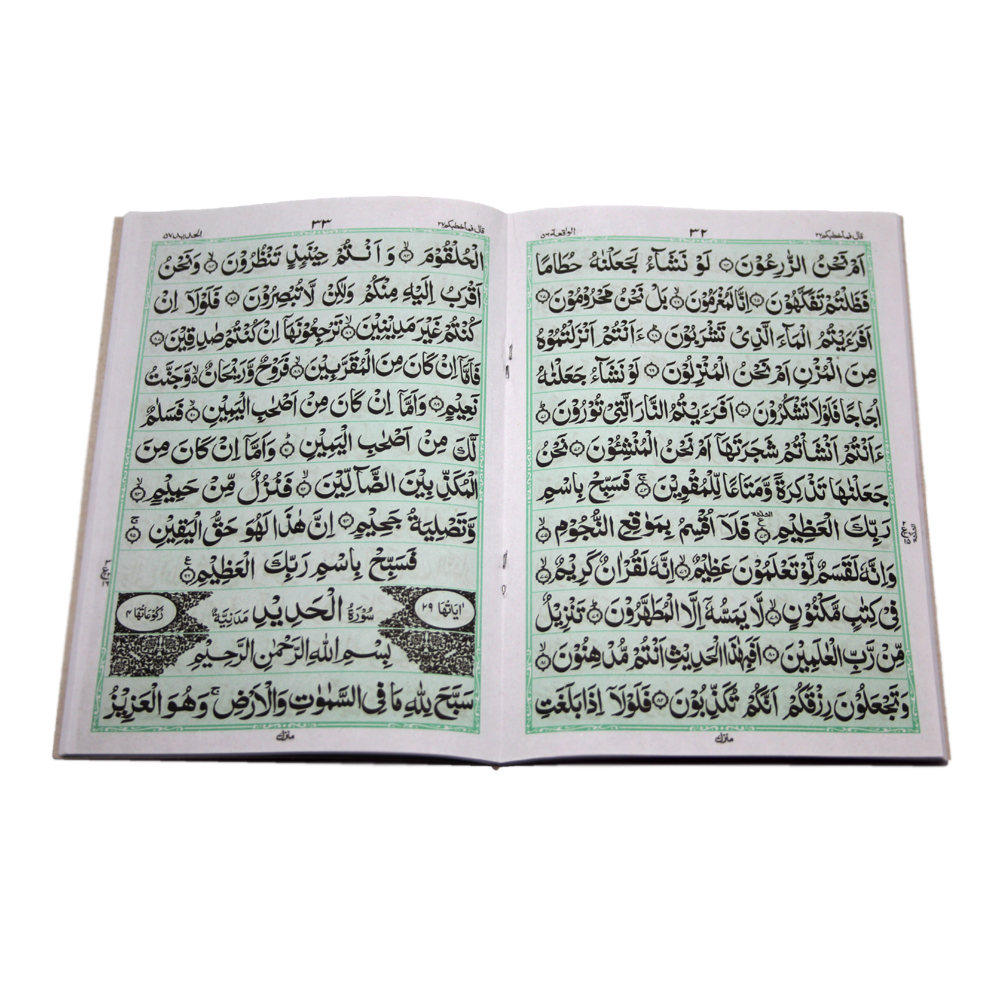 قال فما خطبكم ٢٧
٣٢
الواقعة ٥٦
اَمْ نَحْنُ الزّٰرِعُوْنَ ۞ لَوْ نَشَآءُ لَجَعَلْنٰهُ حُطَامًا
فَظَلْتُمْ تَفَكَّهُوْنَ ۞ اِنَّا لَمُغْرَمُوْنَ ۞ بَلْ نَحْنُ مَحْرُوْمُوْنَ ۞
اَفَرَءَيْتُمُ الْمَآءَ الَّذِىْ تَشْرَبُوْنَ ۞ ءَاَنْتُمْ اَنْزَلْتُمُوْهُ
مِنَ الْمُزْنِ اَمْ نَحْنُ الْمُنْزِلُوْنَ ۞ لَوْ نَشَآءُ جَعَلْنٰهُ
اُجَاجًا فَلَوْلَا تَشْكُرُوْنَ ۞ اَفَرَءَيْتُمُ النَّارَ الَّتِىْ تُوْرُوْنَ ۞
ءَاَنْتُمْ اَنْشَاْتُمْ شَجَرَتَهَآ اَمْ نَحْنُ الْمُنْشِئُوْنَ ۞ نَحْنُ
جَعَلْنٰهَا تَذْكِرَةً وَّمَتَاعًا لِّلْمُقْوِيْنَ ۞ فَسَبِّحْ بِاسْمِ
رَبِّكَ الْعَظِيْمِ ۞ فَلَآ اُقْسِمُ بِمَوٰقِعِ النُّجُوْمِ ۞
وَاِنَّهٗ لَقَسَمٌ لَّوْ تَعْلَمُوْنَ عَظِيْمٌ ۞ اِنَّهٗ لَقُرْاٰنٌ كَرِيْمٌ ۞
فِىْ كِتٰبٍ مَّكْنُوْنٍ ۞ لَّا يَمَسُّهٗٓ اِلَّا الْمُطَهَّرُوْنَ ۞ تَنْزِيْلٌ
مِّنْ رَّبِّ الْعٰلَمِيْنَ ۞ اَفَبِهٰذَا الْحَدِيْثِ اَنْتُمْ مُّدْهِنُوْنَ ۞
وَتَجْعَلُوْنَ رِزْقَكُمْ اَنَّكُمْ تُكَذِّبُوْنَ ۞ فَلَوْلَآ اِذَا بَلَغَتِ
قال فما خطبكم ٢٧
٣٣
الحديد ٥٧
الْحُلْقُوْمَ ۞ وَاَنْتُمْ حِيْنَئِذٍ تَنْظُرُوْنَ ۞ وَنَحْنُ
اَقْرَبُ اِلَيْهِ مِنْكُمْ وَلٰكِنْ لَّا تُبْصِرُوْنَ ۞ فَلَوْلَآ اِنْ
كُنْتُمْ غَيْرَ مَدِيْنِيْنَ ۞ تَرْجِعُوْنَهَآ اِنْ كُنْتُمْ صٰدِقِيْنَ ۞
فَاَمَّآ اِنْ كَانَ مِنَ الْمُقَرَّبِيْنَ ۞ فَرَوْحٌ وَّرَيْحَانٌ ۙ وَّجَنَّتُ
نَعِيْمٍ ۞ وَاَمَّآ اِنْ كَانَ مِنْ اَصْحٰبِ الْيَمِيْنِ ۞ فَسَلٰمٌ
لَّكَ مِنْ اَصْحٰبِ الْيَمِيْنِ ۞ وَاَمَّآ اِنْ كَانَ مِنَ
الْمُكَذِّبِيْنَ الضَّآلِّيْنَ ۞ فَنُزُلٌ مِّنْ حَمِيْمٍ ۞
وَّتَصْلِيَةُ جَحِيْمٍ ۞ اِنَّ هٰذَا لَهُوَ حَقُّ الْيَقِيْنِ ۞
فَسَبِّحْ بِاسْمِ رَبِّكَ الْعَظِيْمِ ۞
اٰيَاتُهَا ٢٩ سُوْرَةُ الْحَدِيْدِ مَدَنِيَّةٌ رُكُوْعَاتُهَا ٤
بِسْمِ اللّٰهِ الرَّحْمٰنِ الرَّحِيْمِ
سَبَّحَ لِلّٰهِ مَا فِى السَّمٰوٰتِ وَالْاَرْضِ ۚ وَهُوَ الْعَزِيْزُ